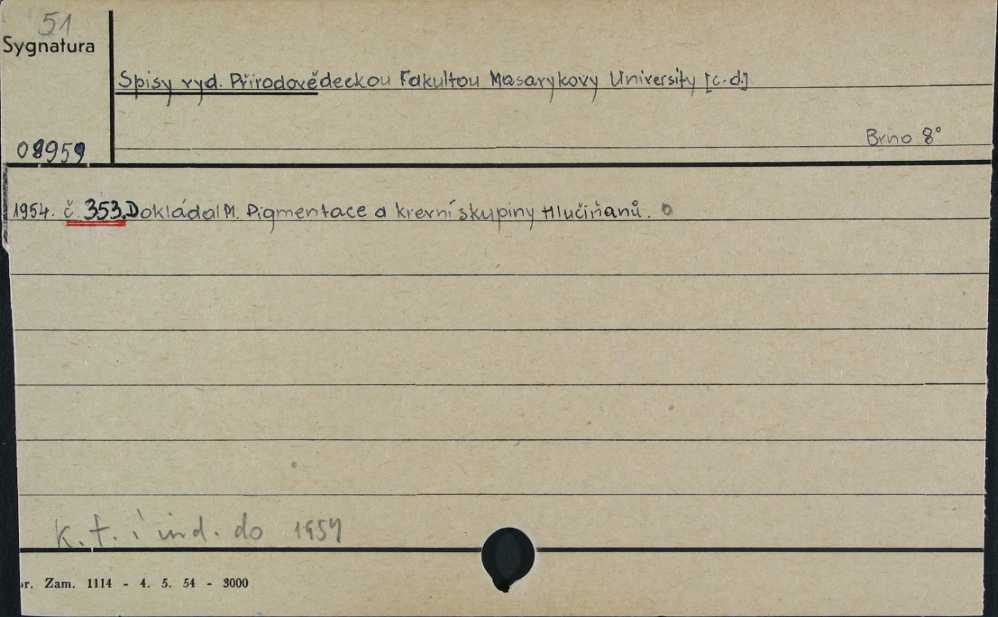 51
Sygnatura
Spisy vyd. Přírodovědeckou Fakultou Masarykovy University [c.d]
08959
Brno 8°
1954. č 353. Dokládal M. Pigmentace a krevní skupiny Hlučíňanů.
K. f. i ind. do 1954
r. Zam. 1114 - 4. 5. 54 - 3000